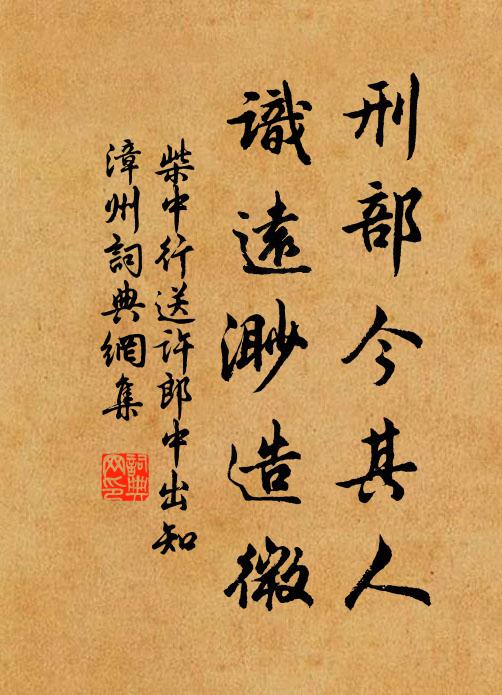 刑部今其人
識遠渺造微
柴中行送許郎中出知
漳州詞典網集
詞典
网印